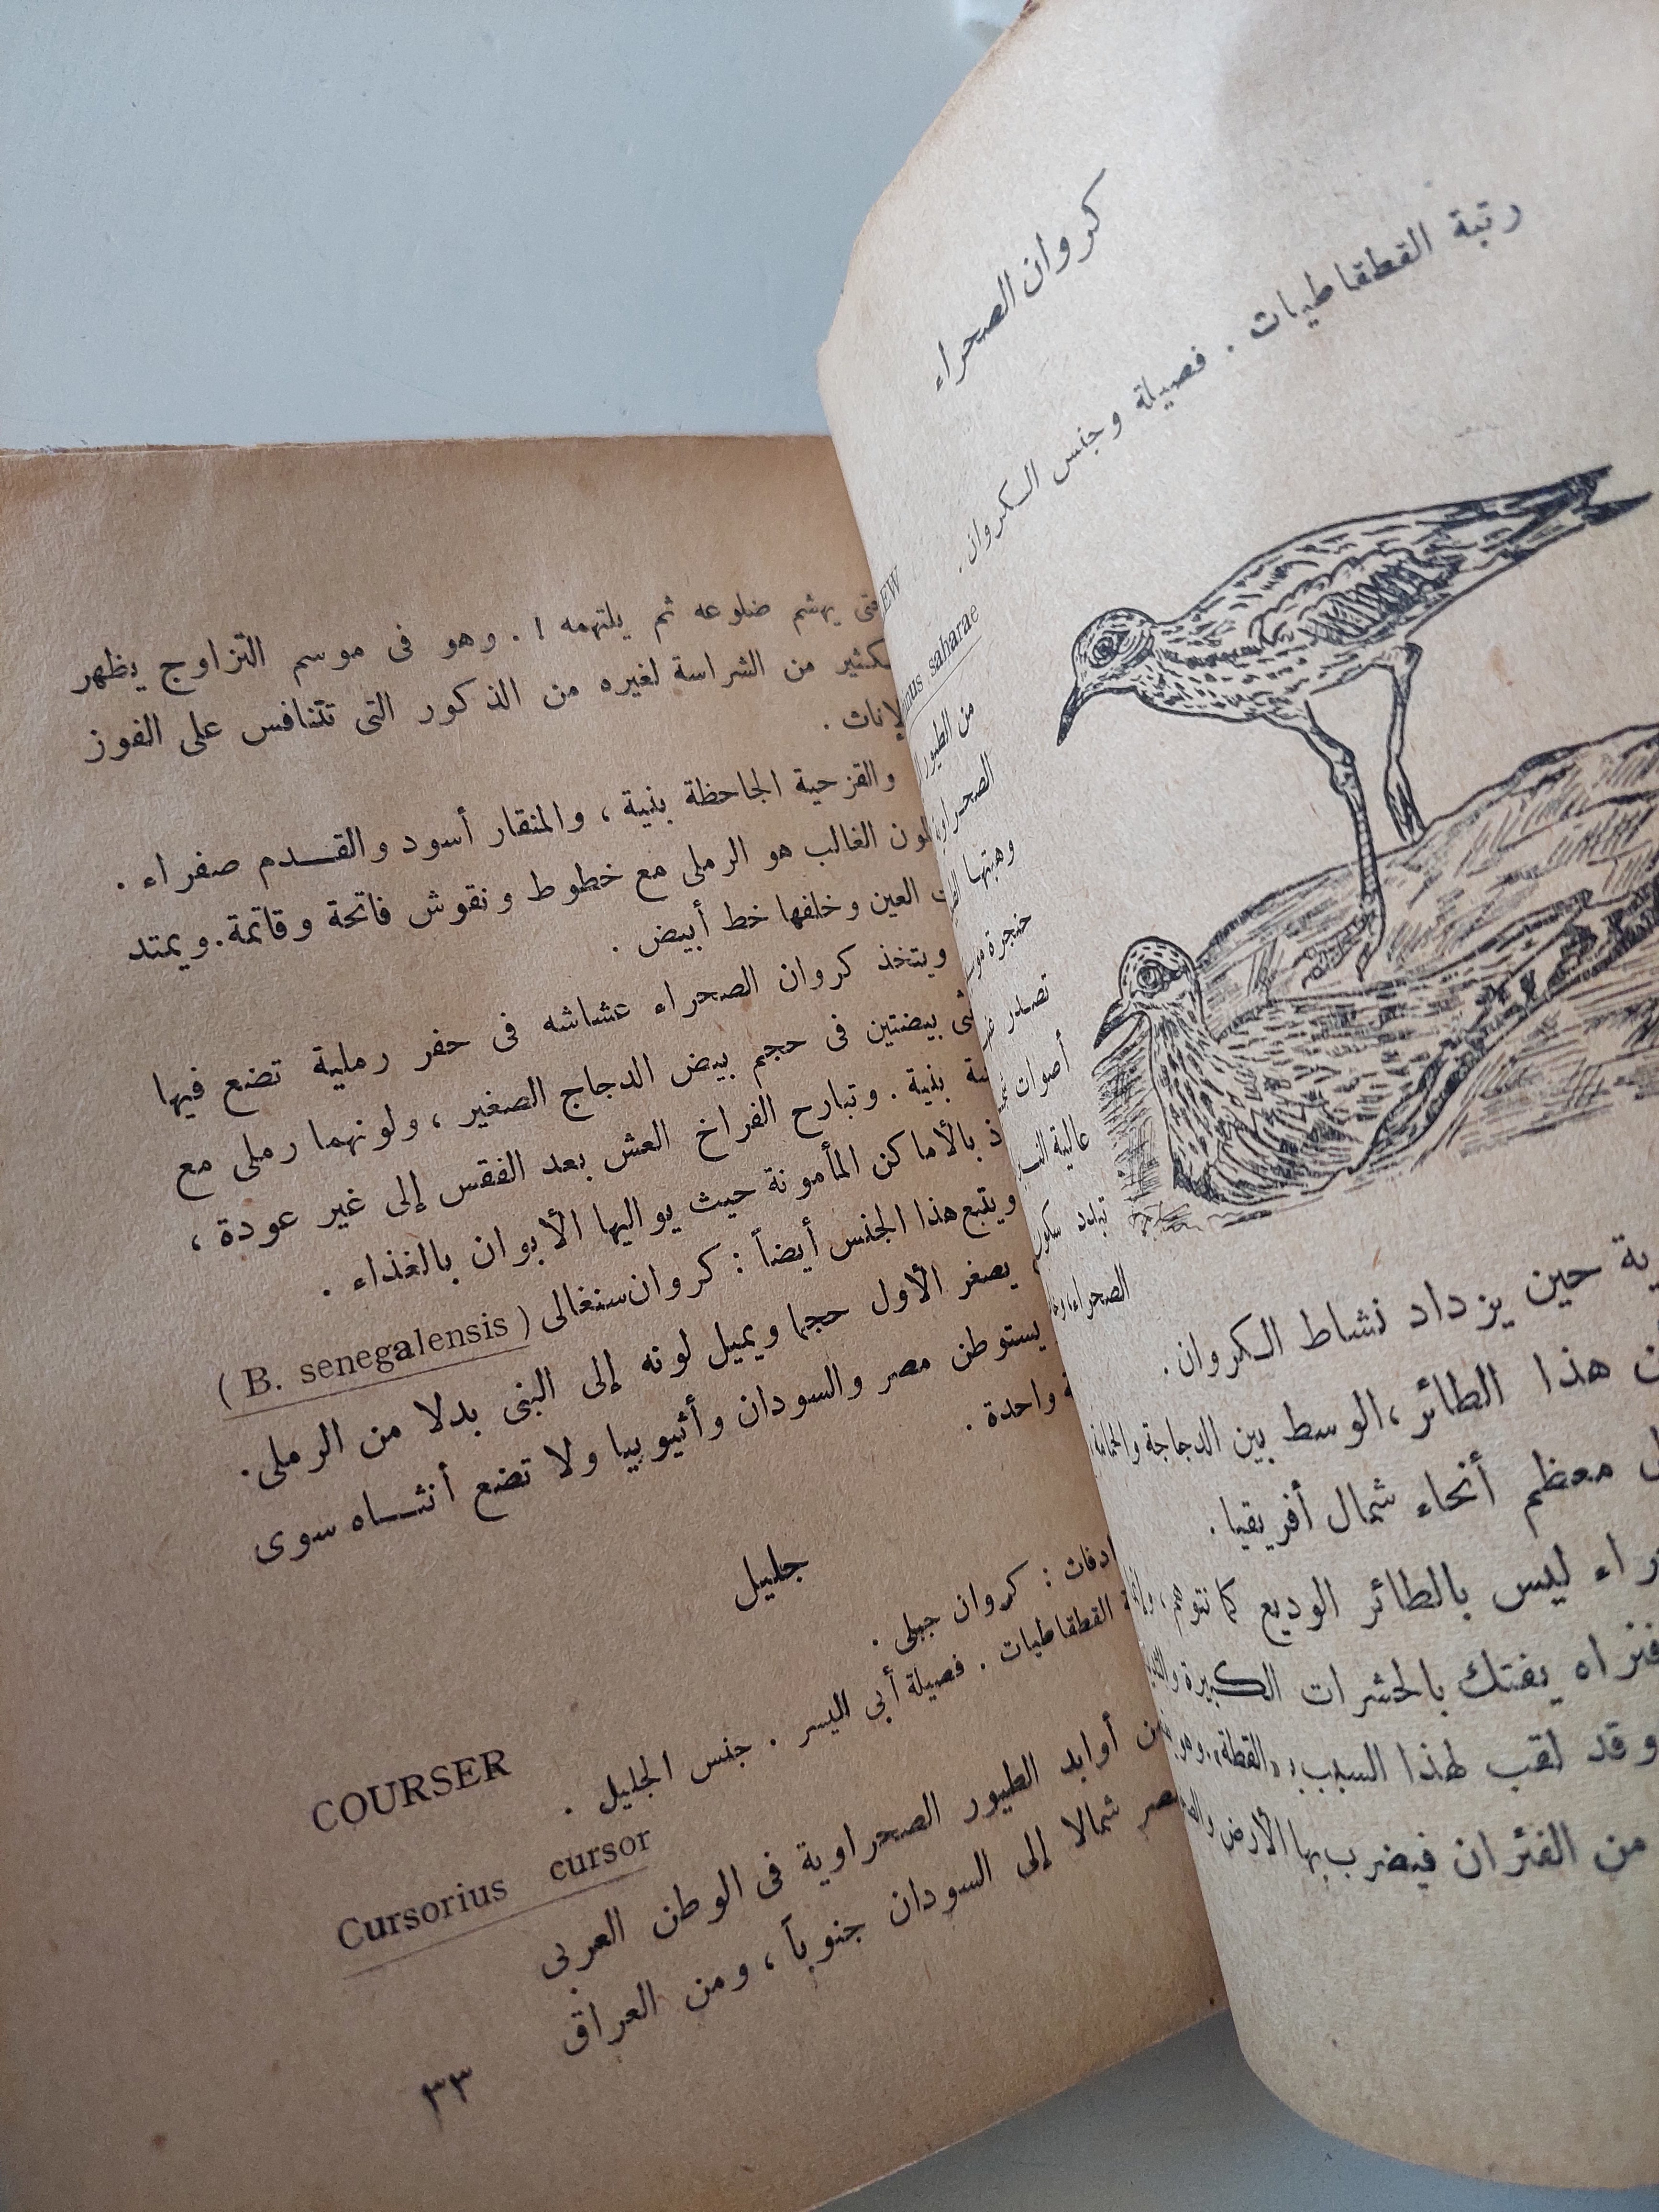 كروان الصحراء
رتبة القطقاطيات . فصيلة وجنس الكروان .
EW
saharae
من الطيور
الصحراوية
وهبتها
حنجرة
تصدر
أصوات
عالية
تبدد سكون
الصحراء
حين يزداد نشاط الكروان.
هذا الطائر، الوسط بين الدجاجة والحمامة
معظم أنحاء شمال أفريقيا.
ليس بالطائر الوديع كما نتوهم،
فنراه يفتك بالحشرات الكبيرة
وقد لقب لهذا السبب «القطة»
من الفئران فيضرب بها الأرض
يهشم ضلوعه ثم يلتهمه ! . وهو فى موسم التزاوج يظهر
من الشراسة لغيره من الذكور التى تتنافس على الفوز
والقزحية الجاحظة بنية ، والمنقار أسود والقدم صفراء .
الغالب هو الرملى مع خطوط ونقوش فاتحة وقاتمة . ويمتد
العين وخلفها خط أبيض .
ويتخذ كروان الصحراء عشاشه فى حفر رملية تضع فيها
بيضتين فى حجم بيض الدجاج الصغير ، ولونهما رملى مع
بنية . وتبارح الفراخ العش بعد الفقس إلى غير عودة ،
بالأماكن المأمونة حيث يواليها الأبوان بالغذاء .
ويتبع هذا الجنس أيضاً : كروان سنغالى ( B. senegalensis )
يصغر الأول حجما ويميل لونه إلى البنى بدلا من الرملى .
يستوطن مصر والسودان وأثيوبيا ولا تضع أنثاه سوى
واحدة .
جليل
كروان جبلى .
القطقاطيات . فصيلة أبى اليسر . جنس الجليل .
COURSER
Cursorius cursor
من أوابد الطيور الصحراوية فى الوطن العربى
شمالا إلى السودان جنوباً ، ومن العراق
٣٣